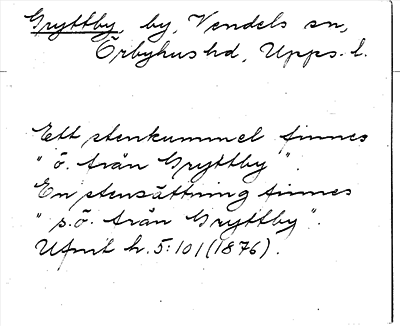 Gryttby, by, Vendels sn,
Örbyhus hd, Upps. l.
Ett stenkummel finnes
" ö. från Gryttby ".
En stensättning finnes
" s.ö. från Gryttby ".
Ufmt h. 5:101 (1876).